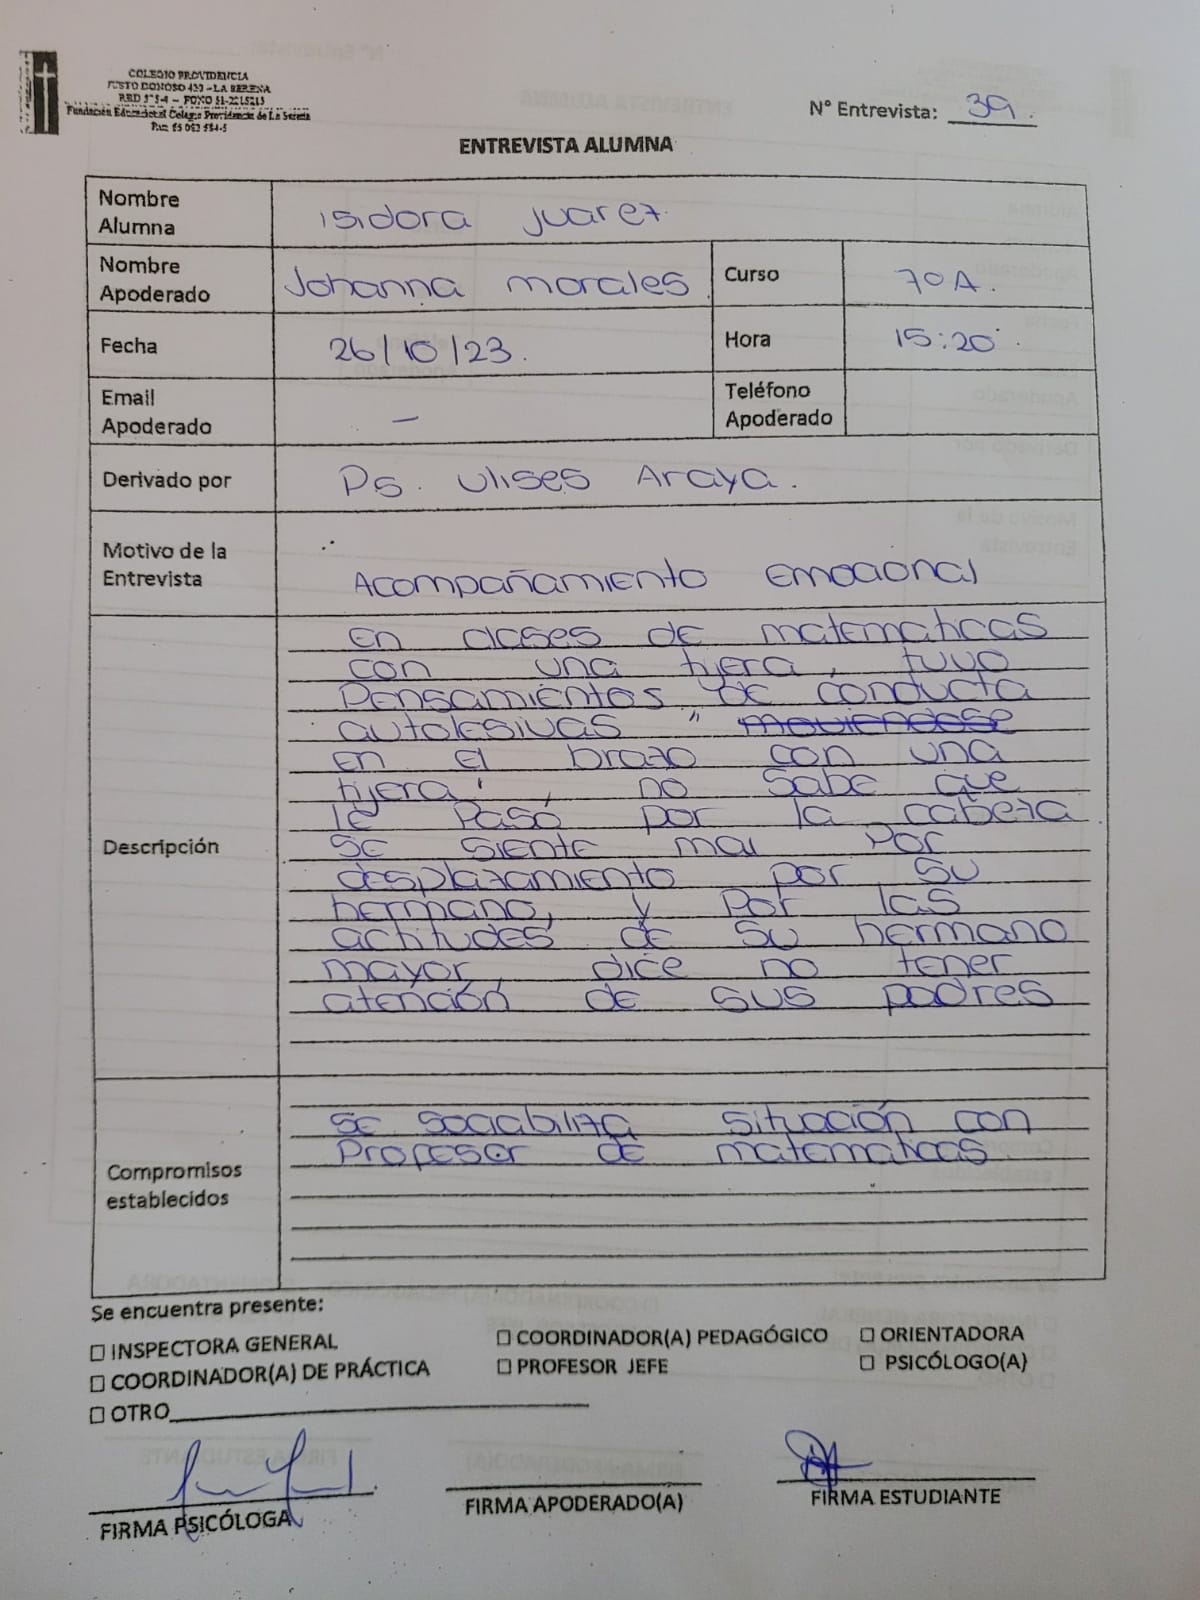 COLEGIO PROVIDENCIA
JUSTO DONOSO 420 - LA SERENA
FONO 51-2215213
Fundación Educacional Colegio Providencia de La Serena
N° Entrevista: 39.
ENTREVISTA ALUMNA
Nombre Alumna isidora Juarez.
Nombre Apoderado Johanna Morales Curso 7oA.
Fecha 26/10/23. Hora 15:20.
Email Apoderado - Teléfono Apoderado
Derivado por Ps. Ulises Araya.
Motivo de la Entrevista Acompañamiento Emocional
Descripción
En clases de matematicas
con una tijera, tuvo
Pensamientos de conducta
autolesivas "
en el brazo con una
tijera", no sabe que
le Pasó por la cabeza
se siente mal Por
desplazamiento por su
hermano, y por las
actitudes de su hermano
mayor, dice no tener
atención de sus padres
Compromisos establecidos
Se sociabiliza situación con
Profesor de matematicas.
Se encuentra presente:
☐ INSPECTORA GENERAL ☐ COORDINADOR(A) PEDAGÓGICO ☐ ORIENTADORA
☐ COORDINADOR(A) DE PRÁCTICA ☐ PROFESOR JEFE ☐ PSICÓLOGO(A)
☐ OTRO
FIRMA PSICÓLOGA FIRMA APODERADO(A) FIRMA ESTUDIANTE